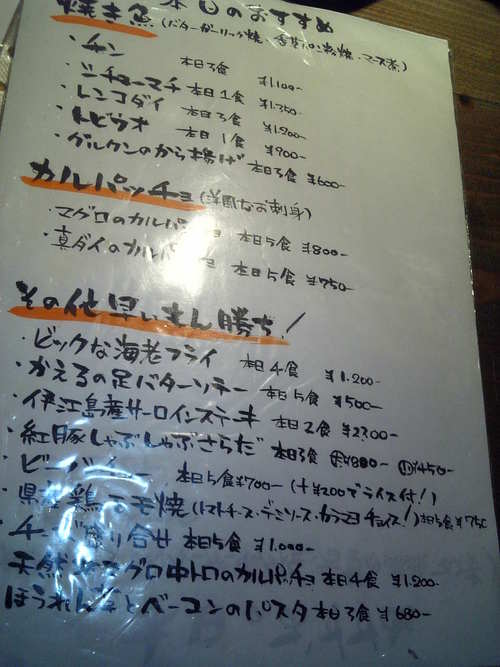 本日のおすすめ
焼き魚(バターガーリック焼
・チン 本日3食 ¥1,100-
・シチューマチ 本日1食 ¥1,350-
・レンコダイ 本日3食 ¥1,200-
・トビウオ 本日1食 ¥900-
・グルクンのから揚げ 本日3食 ¥600-
カルパッチョ(洋風なお刺身)
・マグロのカルパ ョ 本日5食 ¥800-
・真ダイのカルパ ョ 本日5食 ¥750-
その他早いもん勝ち!
・ビックな海老フライ 本日4食 ¥1,200-
・かえるの足バターソテー 本日5食 ¥500-
・伊江島産サーロインステーキ 本日2食 ¥2,300-
・紅豚しゃぶしゃぶさらだ 本日3食 ¥450-
・ビー 本日5食 ¥700- (+¥200でライス付!)
・県産鶏モモ焼(トマトチーズ・デミソース・ チョイス!)本日5食
・チーズ盛り合せ 本日5食 ¥1,000-
天然 マグロ中トロのカルパッチョ 本日4食 ¥1,200-
ほうれん草とベーコンのパスタ 本日3食 ¥680-